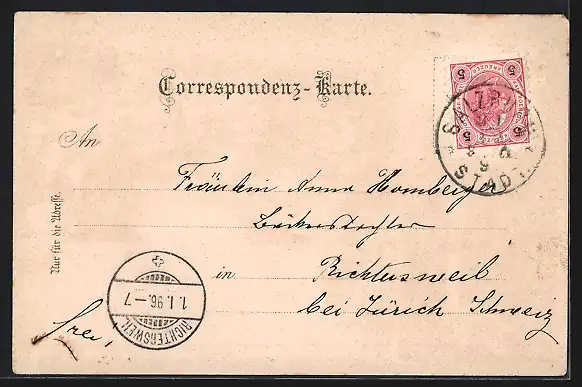 Correspondenz-Karte.
An
Fräulein Anna Homberger
Bäckerstochter
in Richtersweil
bei Zürich Schweiz
frei!
Nur für die Adresse.
5 5
5 5
SALZBURG
STADT
RICHTERSWEIL
1.I.96.-7